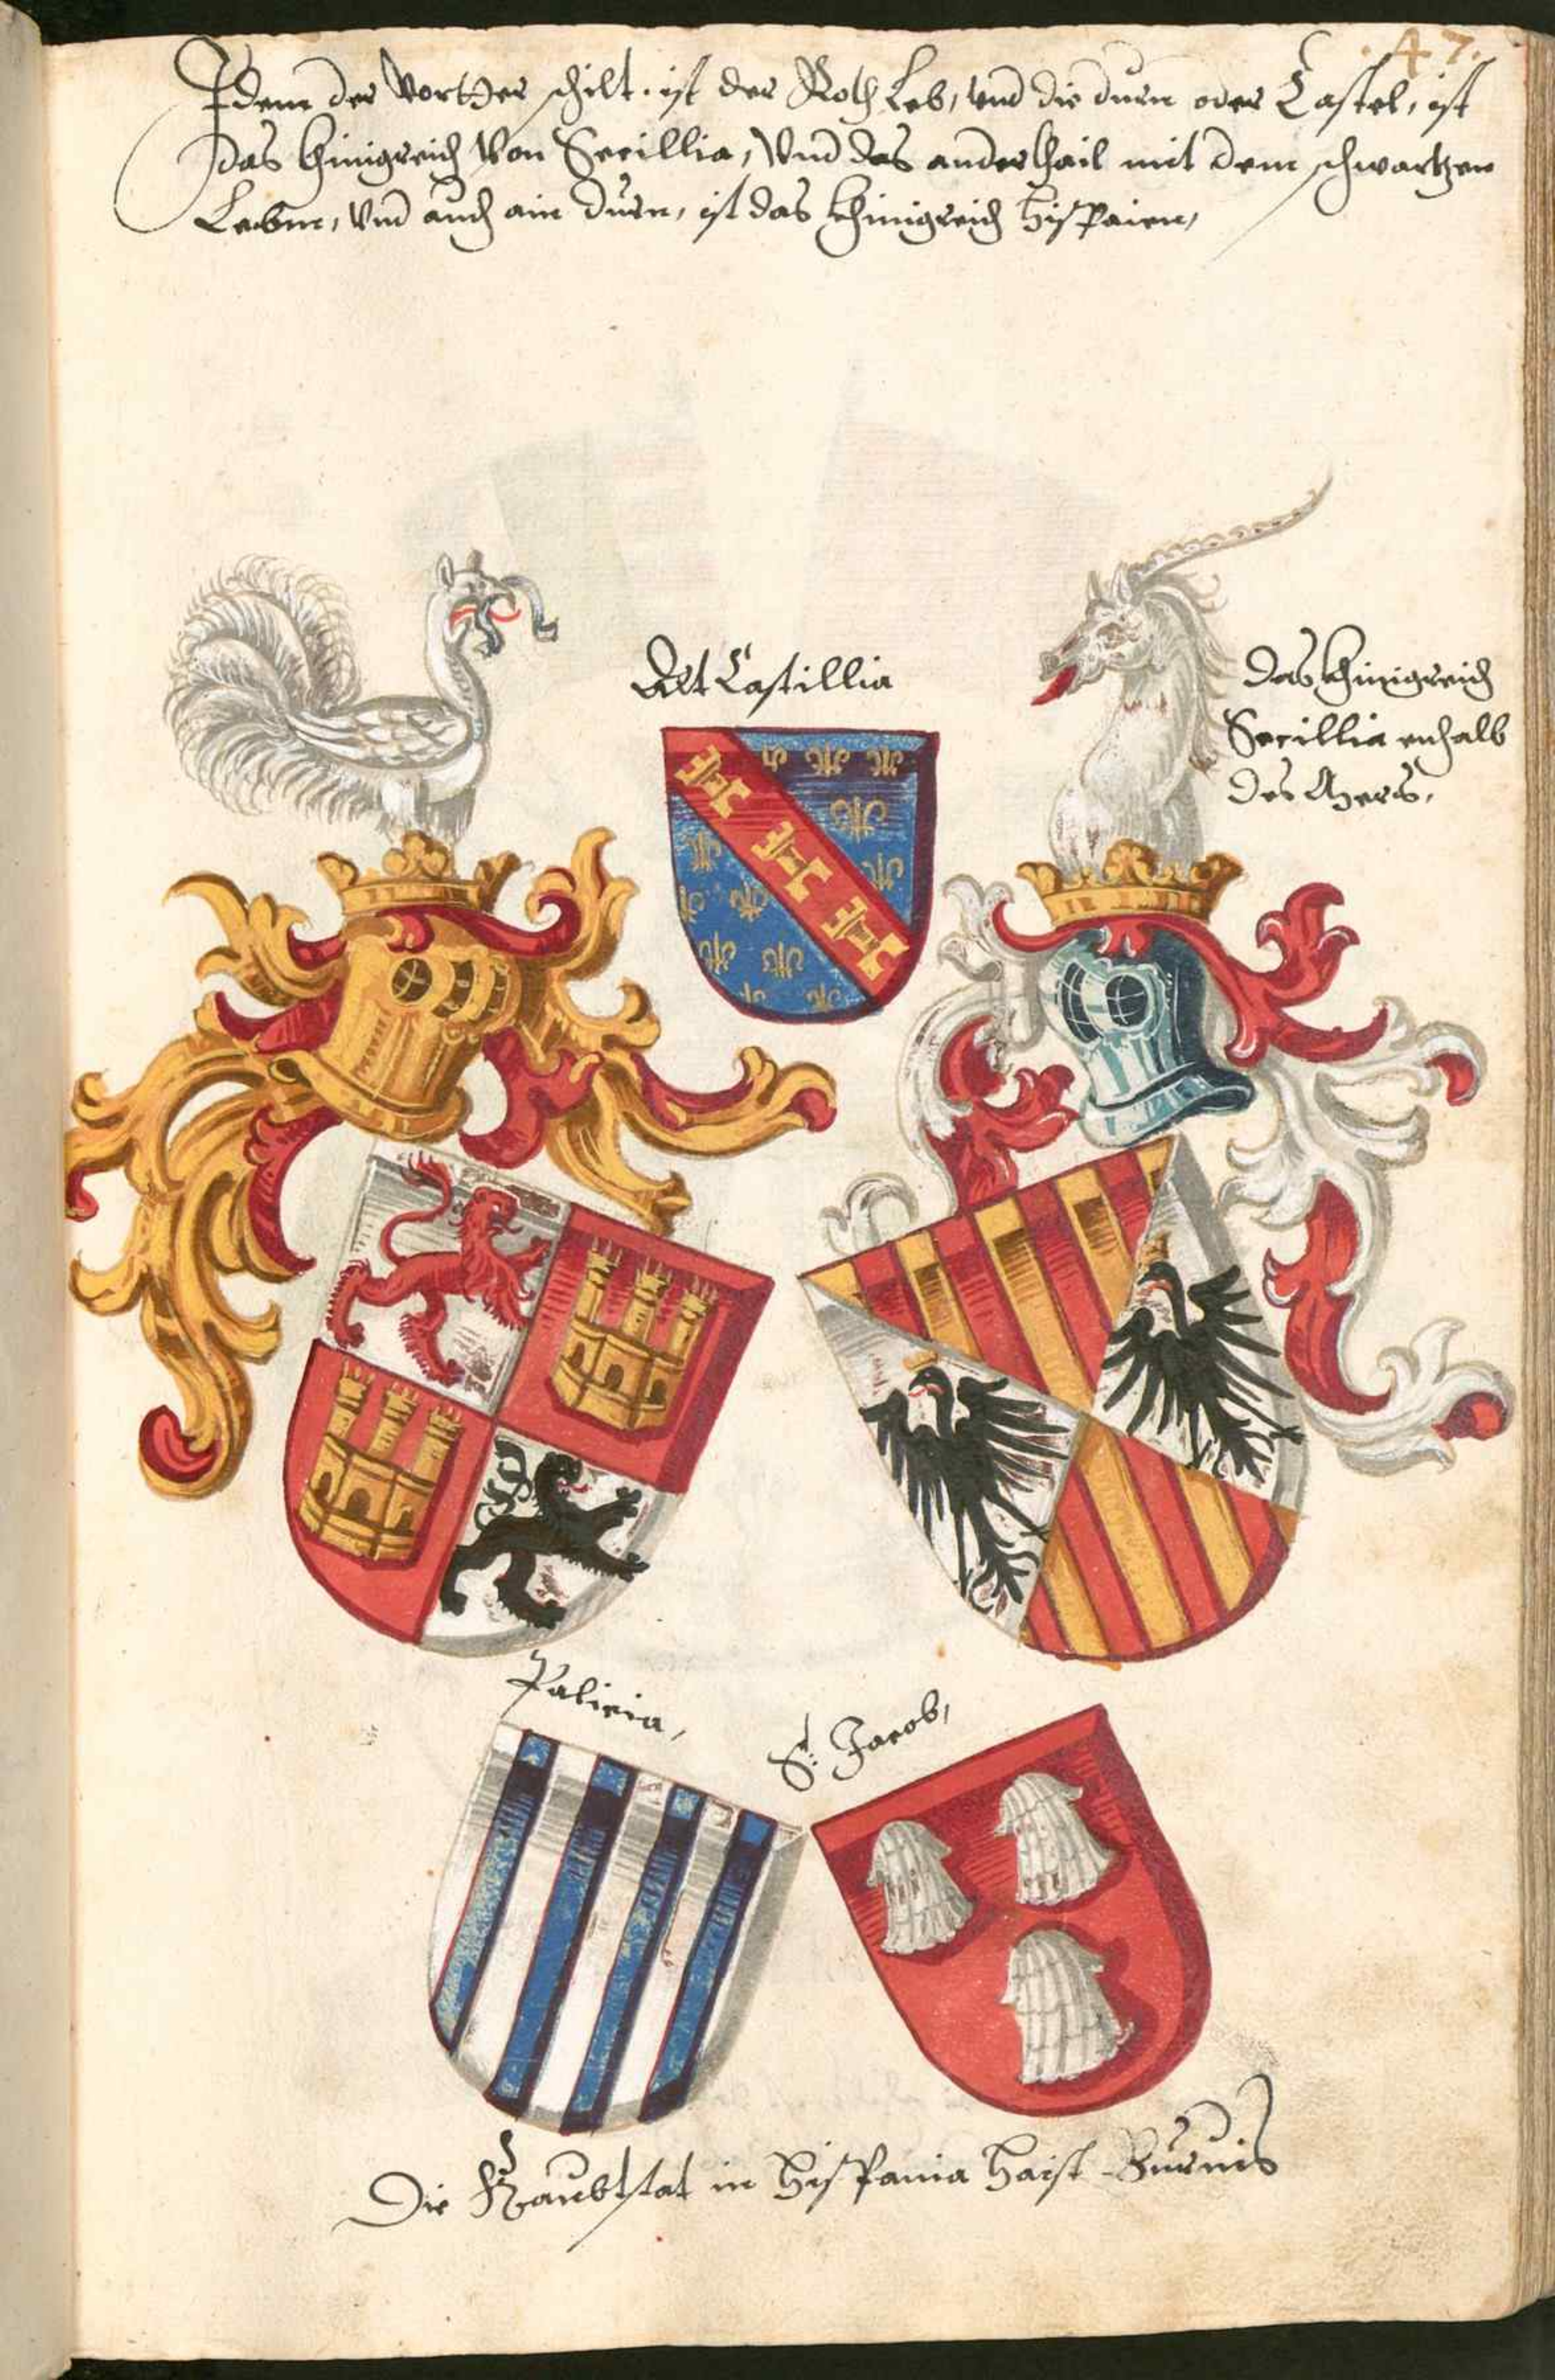 .47.
In dem der Vorther schilt. ist der Roth Leb, und die durn oder Castel, ist
das Khinigreich Von Secillia, Und das ander thail mit dem schwartzen
Lebm, Und auch ain durn, ist das Khinigreich Hispaien,
Alt Castillia
Das Khinigreich
Secillia enhalb
des Mers,
Palicia,
S: Jacob,
Die Haubtstat in Hispania Haist Burnis